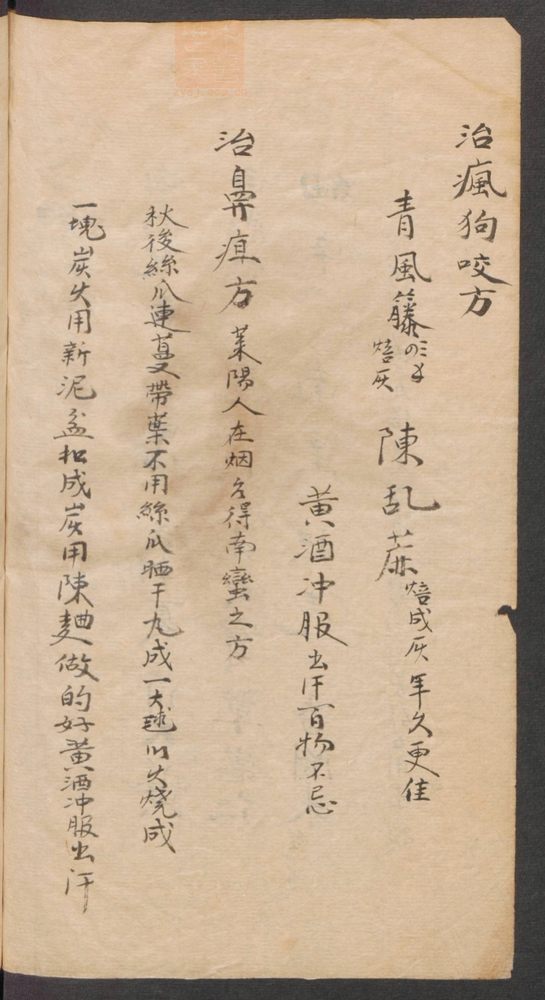 治瘋狗咬方
青風籐 焙灰 陳乱麻 焙成灰年久更佳
黄酒冲服出汗百物不忌
治鼻疽方 莱陽人在烟台得南蛮之方
秋後絲瓜連蔓帶葉不用絲瓜晒干丸成一大毬以火燒成
一塊炭火用新泥盆扣成炭用陳麯做的好黄酒冲服出汗